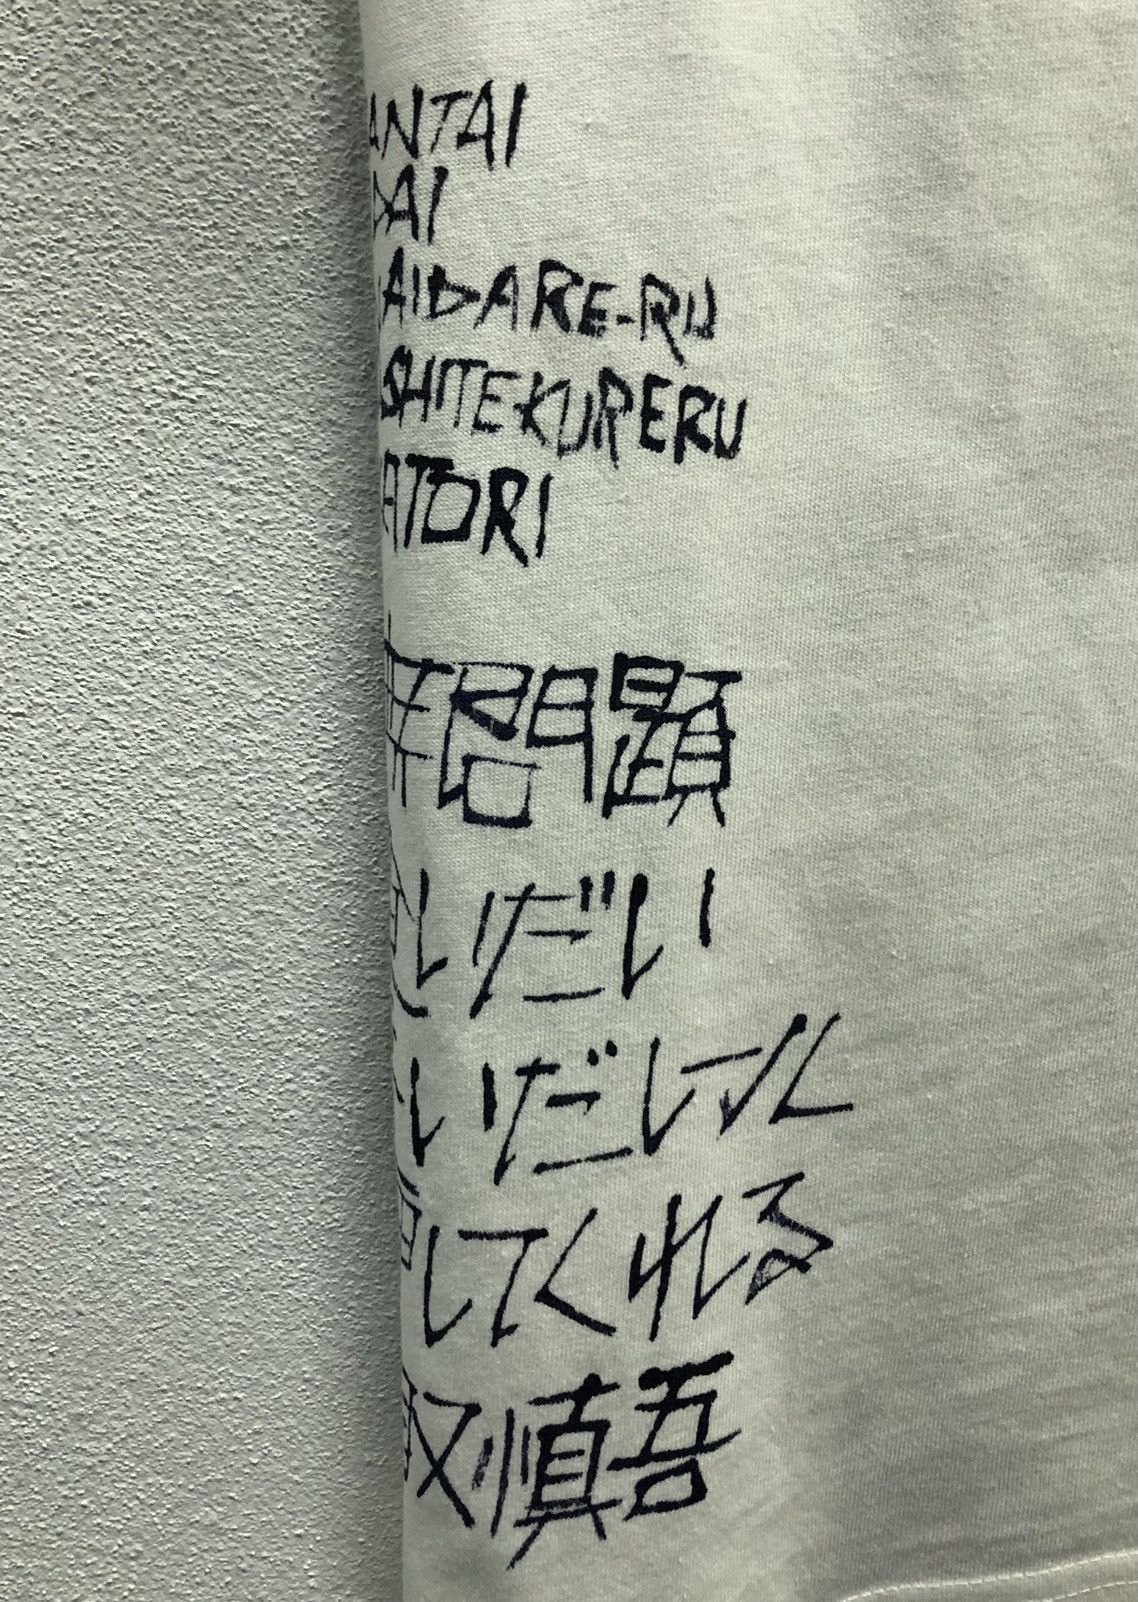 ANTAI
DAI
AIDARE-RU
SHITEKURERU
ATORI
無問題
いだい
いだレール
してくれる
取慎吾